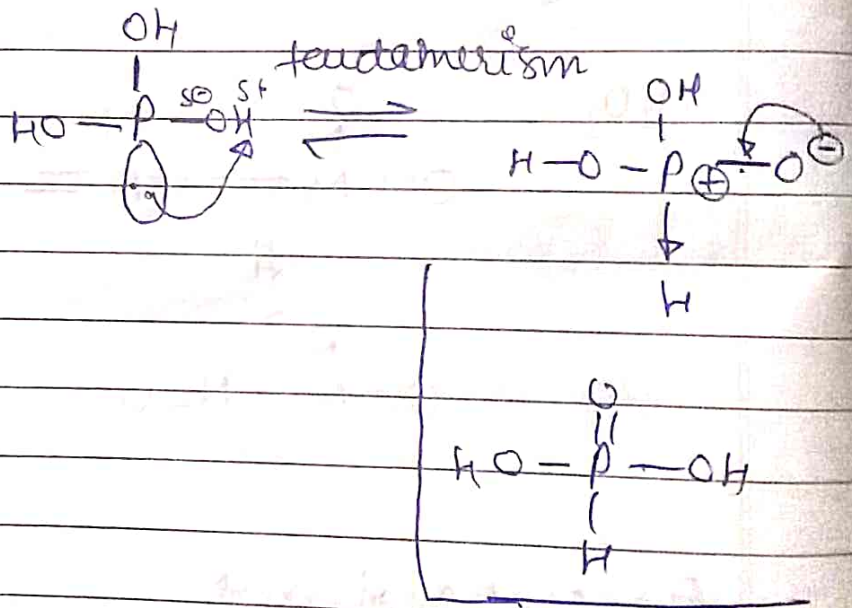 OH
tautamerism
HO — P — OH
δ⊖ δ+
⇌
OH
H — O — P ⊕ — O ⊖
H
O
HO — P — OH
H